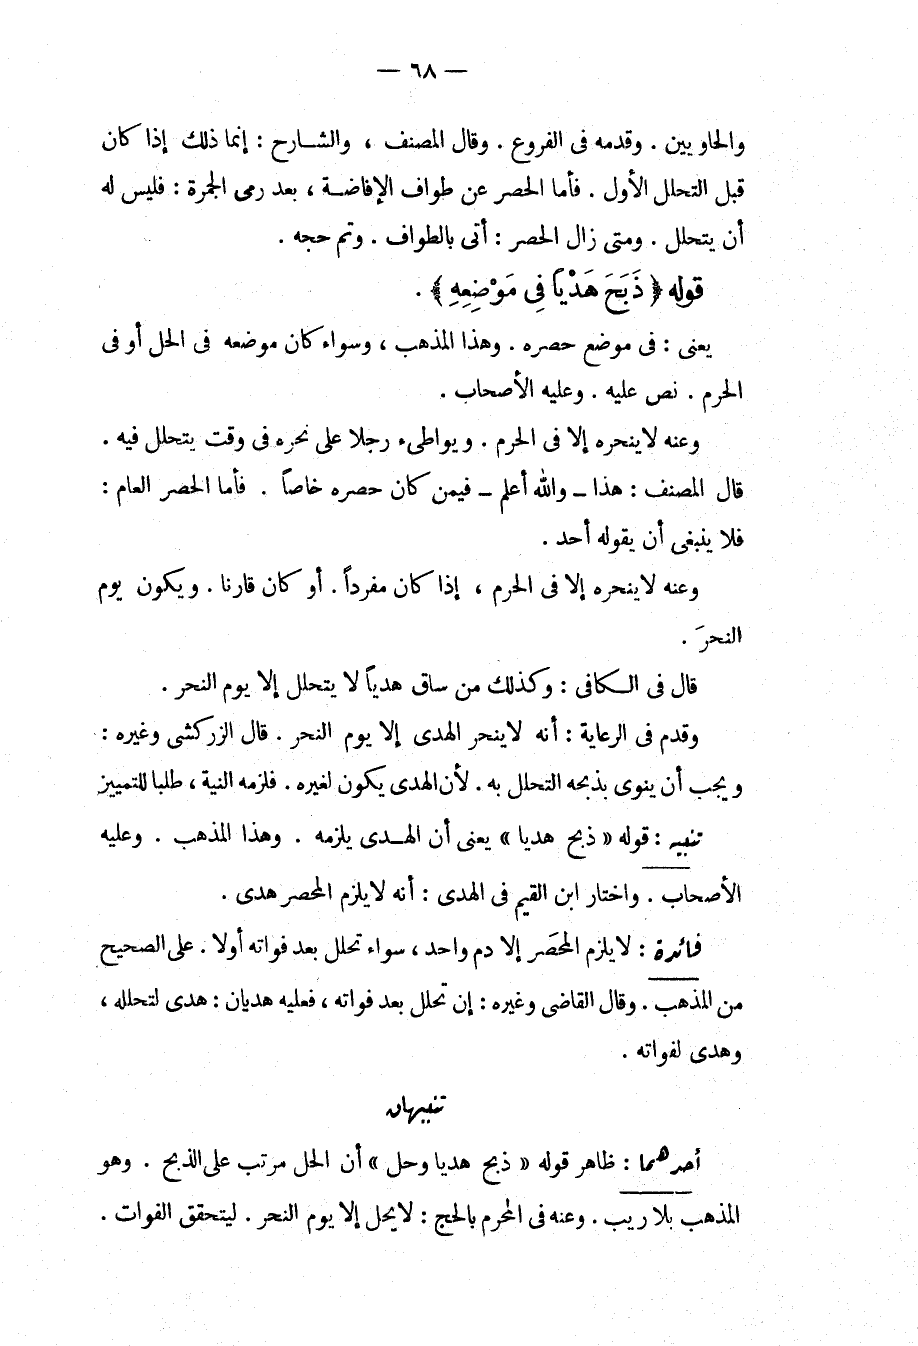 — ٦٨ —
والحاويين . وقدمه فى الفروع . وقال المصنف ، والشارح : إنما ذلك إذا كان
قبل التحلل الأول . فأما الحصر عن طواف الإفاضة ، بعد رمى الجمرة : فليس له
أن يتحلل . ومتى زال الحصر : أتى بالطواف . وتم حجه .
قوله ﴿ ذَبَحَ هَدْياً فِى مَوْضِعِهِ ﴾ .
يعنى : فى موضع حصره . وهذا المذهب ، وسواء كان موضعه فى الحل أو فى
الحرم . نص عليه . وعليه الأصحاب .
وعنه لاينحره إلا فى الحرم . ويواطىء رجلا على نحره فى وقت يتحلل فيه .
قال المصنف : هذا ــ والله أعلم ــ فيمن كان حصره خاصاً . فأما الحصر العام :
فلا ينبغى أن يقوله أحد .
وعنه لاينحره إلا فى الحرم ، إذا كان مفرداً . أو كان قارنا . ويكون يوم
النحرَ .
قال فى الكافى : وكذلك من ساق هدياً لا يتحلل إلا يوم النحر .
وقدم فى الرعاية : أنه لاينحر الهدى إلا يوم النحر . قال الزركشى وغيره :
ويجب أن ينوى بذبحه التحلل به . لأن الهدى يكون لغيره . فلزمه النية ، طلبا للتمييز
تنبيه : قوله « ذبح هديا » يعنى أن الهدى يلزمه . وهذا المذهب . وعليه
الأصحاب . واختار ابن القيم فى الهدى : أنه لايلزم المحصر هدى .
فائدة : لايلزم المحصَر إلا دم واحد ، سواء تحلل بعد فواته أولا . على الصحيح
من المذهب . وقال القاضى وغيره : إن تحلل بعد فواته ، فعليه هديان : هدى لتحلله ،
وهدى لفواته .
تنبيهان
أحدهما : ظاهر قوله « ذبح هديا وحل » أن الحل مرتب على الذبح . وهو
المذهب بلا ريب . وعنه فى المحرم بالحج : لايحل إلا يوم النحر . ليتحقق الفوات .